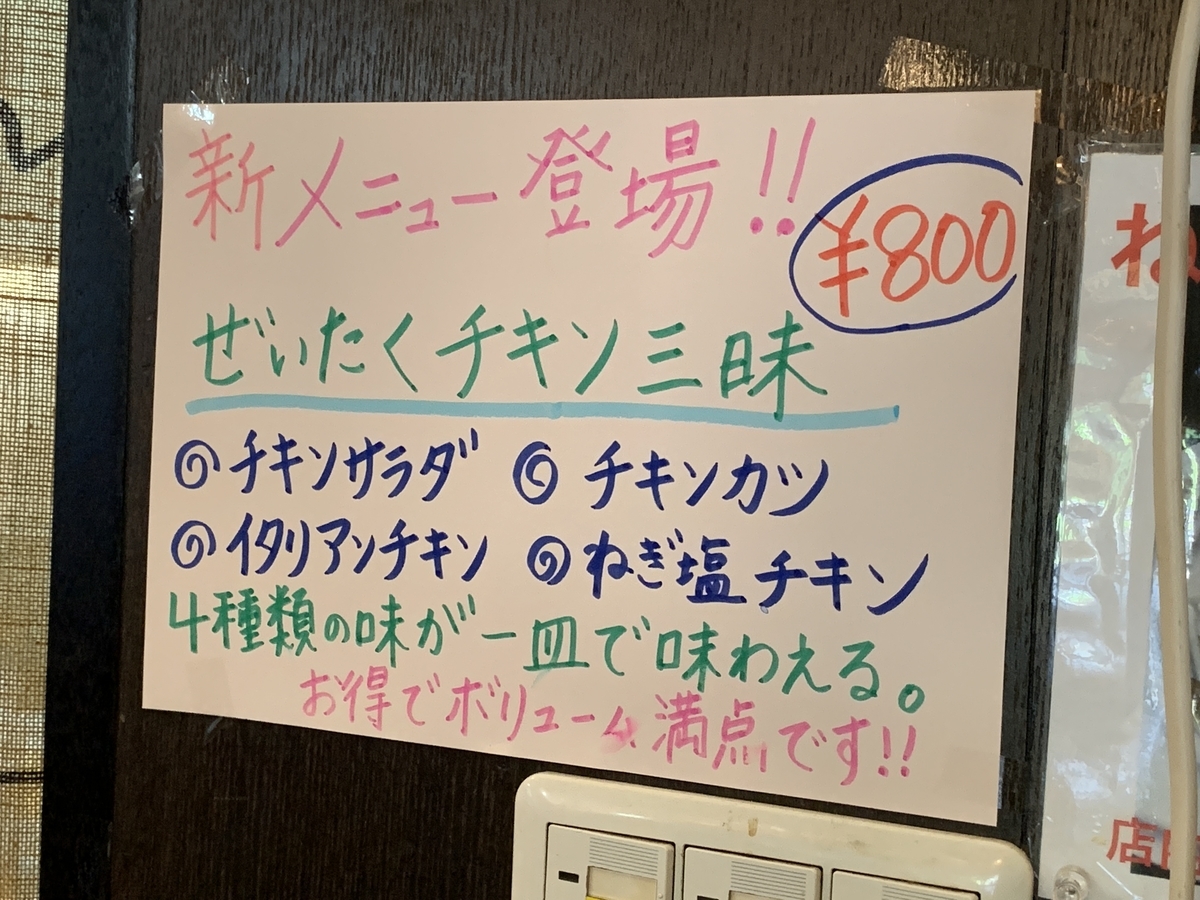 新メニュー登場!!
¥800
ぜいたくチキン三昧
◎チキンサラダ ◎チキンカツ
◎イタリアンチキン ◎ねぎ塩チキン
4種類の味が一皿で味わえる。
お得でボリューム満点です!!
ね
店